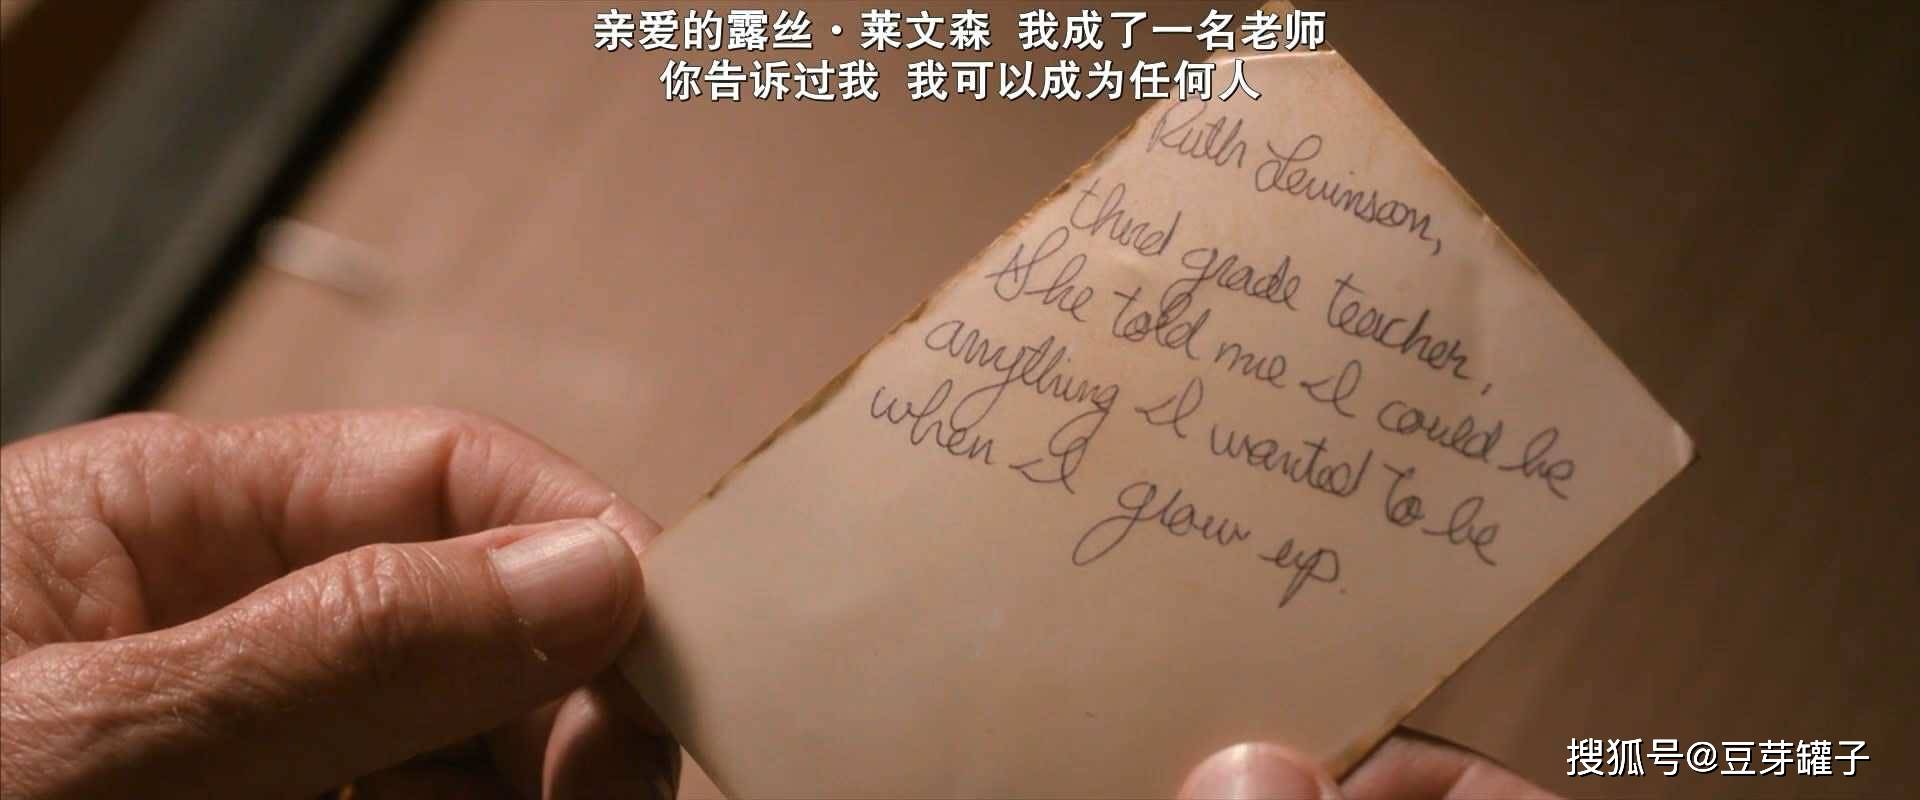 亲爱的露丝·莱文森 我成了一名老师
你告诉过我 我可以成为任何人
Ruth Levinson,
third grade teacher.
She told me I could be
anything I wanted to be
when I grow up.
搜狐号@豆芽罐子